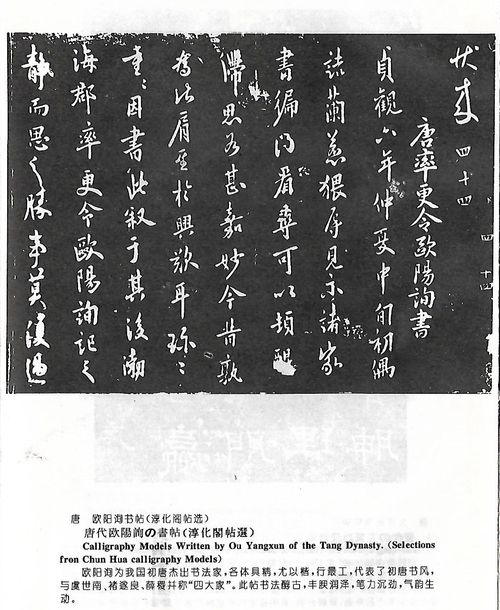 四十四
四十四
唐率更令歐陽詢書
貞觀六年仲夏中旬初偶
蘭惹猥辱見示諸家
書 看尋可以頓醒
滯思 甚嘉妙今昔孰
肩至於興歎耳珍〻
重〻因書此叙于其後渤
海郡率更令歐陽詢記之
靜而思之勝事莫復過
唐　欧阳询书帖(淳化阁帖选)
唐代欧陽詢の書帖(淳化閣帖選)
Calligraphy Models Written by Ou Yangxun of the Tang Dynasty. (Selections
fron Chun Hua calligraphy Models)
欧阳询为我国初唐杰出书法家,各体具精,尤以楷,行最工,代表了初唐书风,
与虞世南、褚遂良、薛稷并称“四大家”。此帖书法醇古,丰腴润泽,笔力沉劲,气韵生
动。